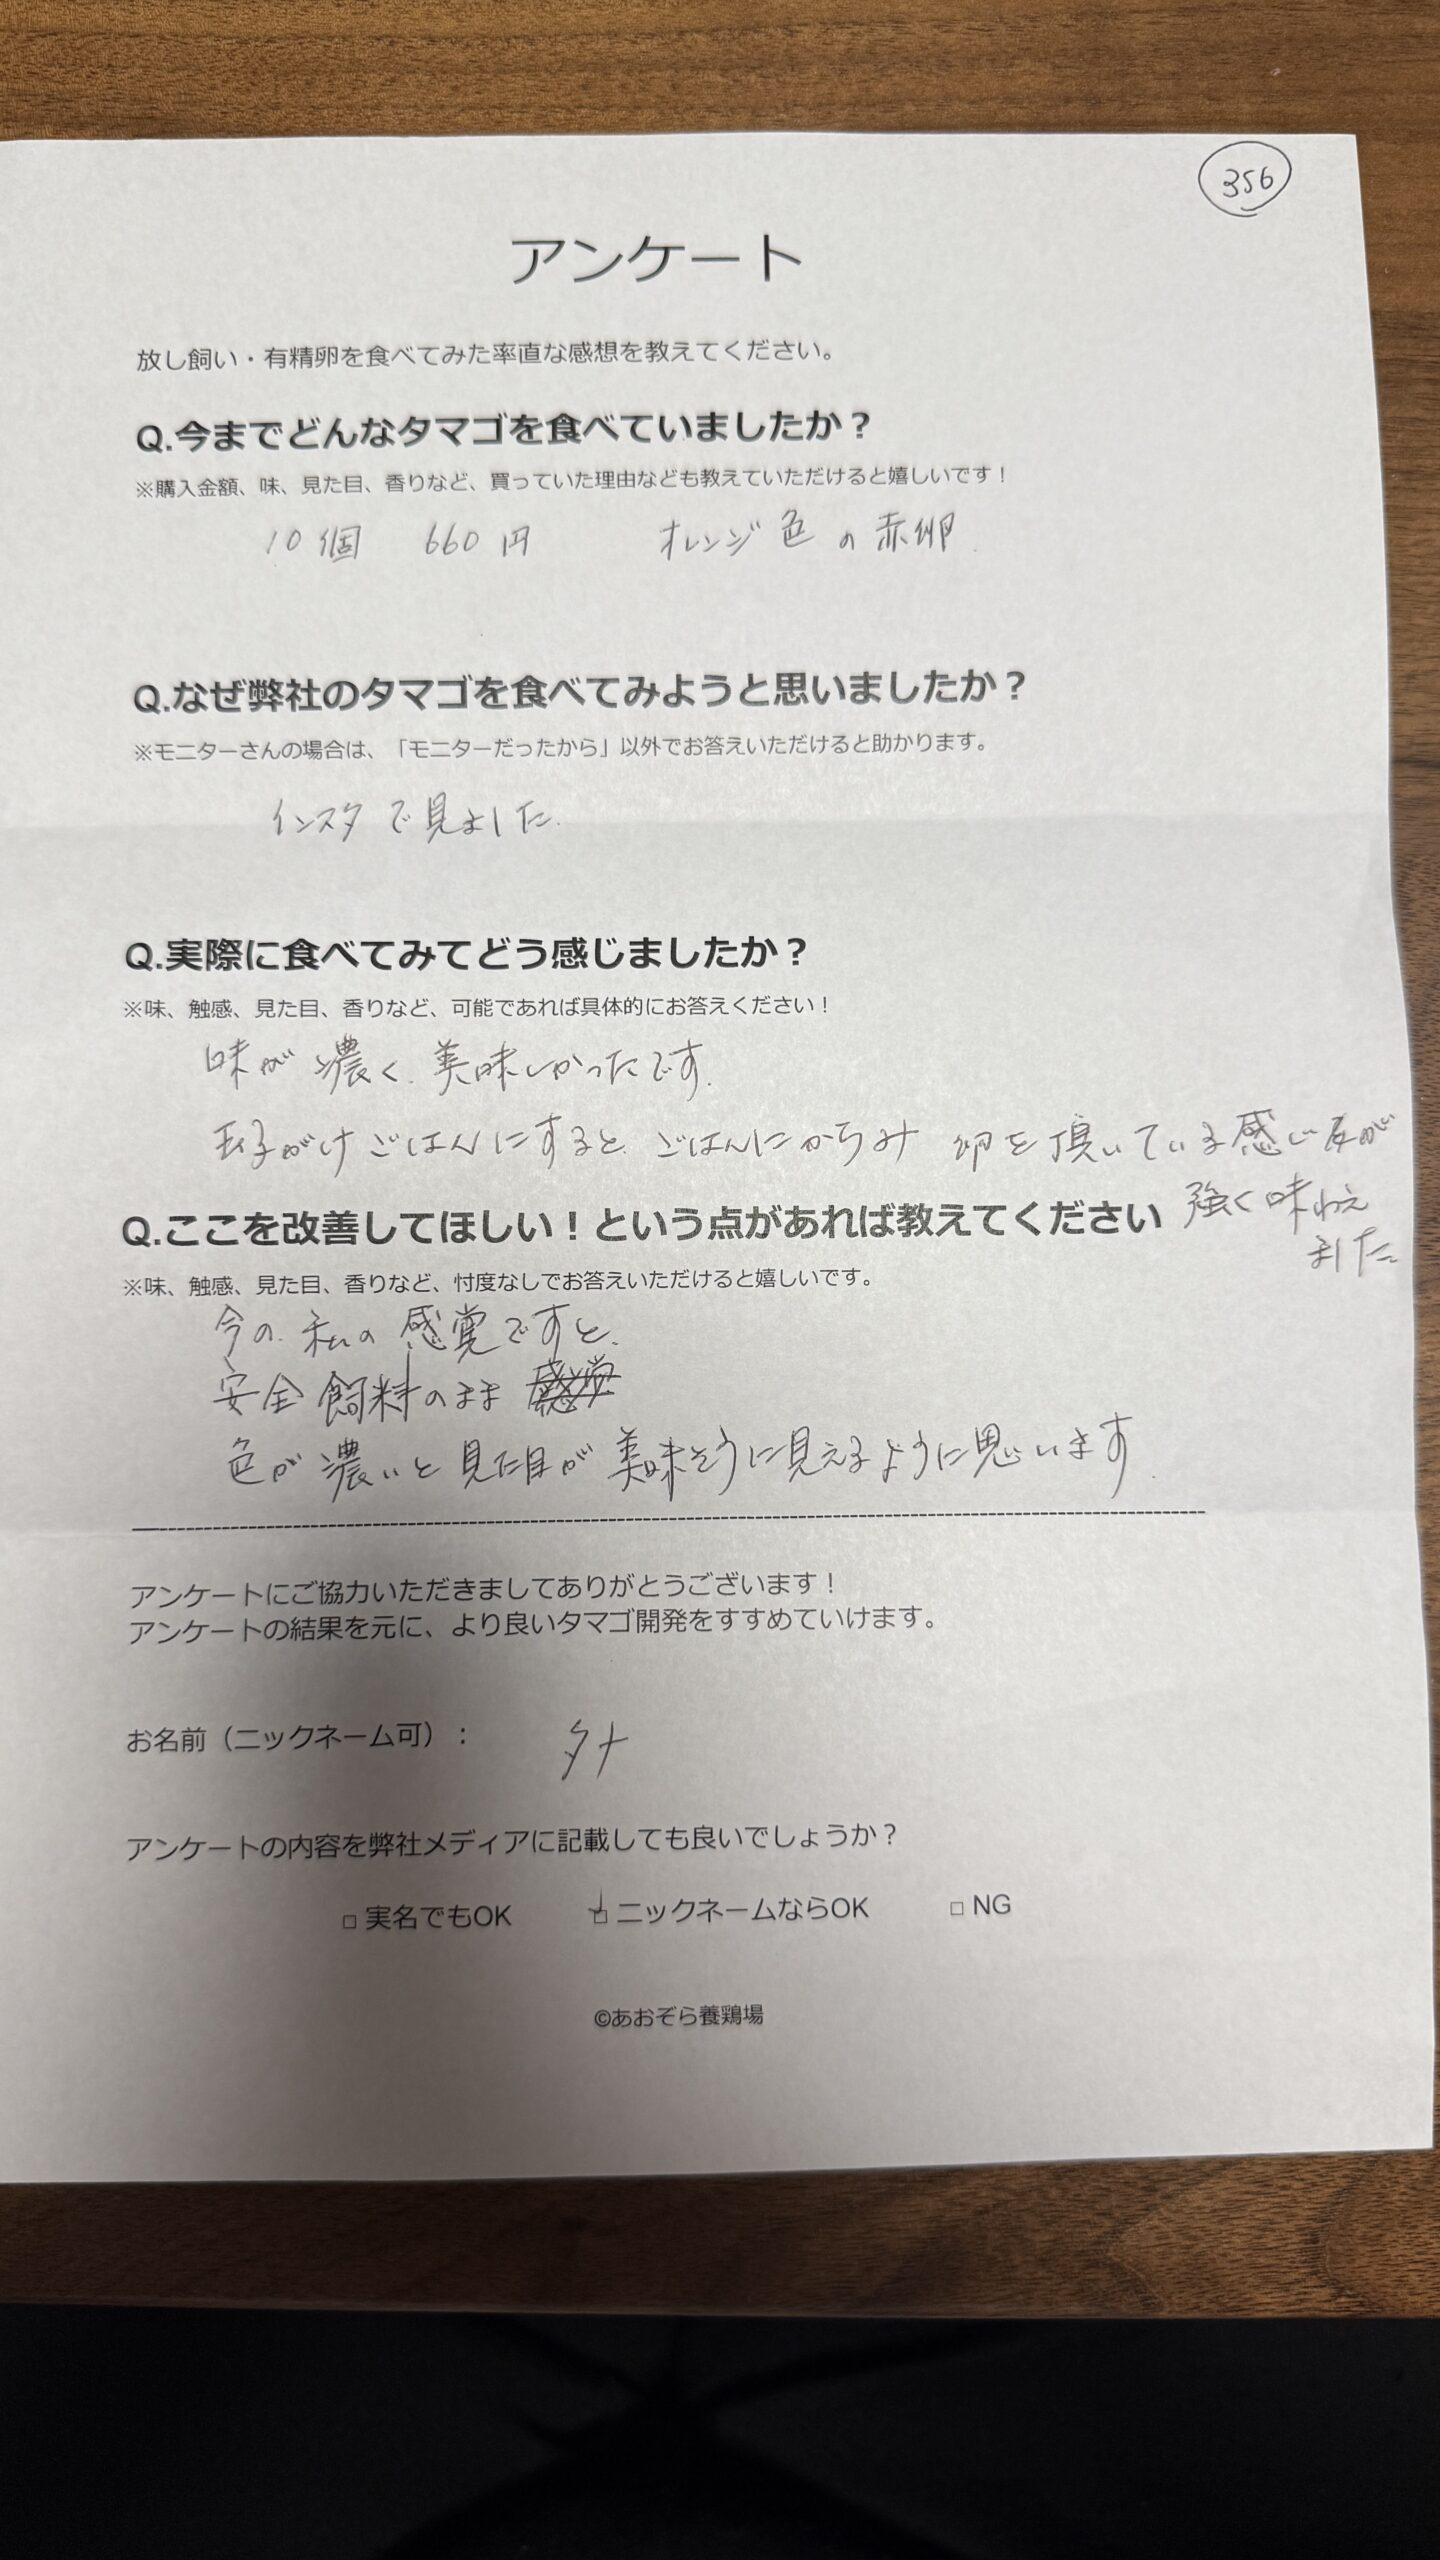 356
アンケート
放し飼い・有精卵を食べてみた率直な感想を教えてください。
Q.今までどんなタマゴを食べていましたか？
※購入金額、味、見た目、香りなど、買っていた理由なども教えていただけると嬉しいです！
10個 660円 オレンジ色の赤卵.
Q.なぜ弊社のタマゴを食べてみようと思いましたか？
※モニターさんの場合は、「モニターだったから」以外でお答えいただけると助かります。
インスタで見ました.
Q.実際に食べてみてどう感じましたか？
※味、触感、見た目、香りなど、可能であれば具体的にお答えください！
味が濃く、美味しかったです.
玉子がけごはんにするとごはんにからみ 卵を頂いている感じがが
強く味わえ
ました
Q.ここを改善してほしい！という点があれば教えてください
※味、触感、見た目、香りなど、忖度なしでお答えいただけると嬉しいです。
今の私の感覚ですと、
安全飼料のまま
色が濃いと見た目が美味そうに見えるように思います.
アンケートにご協力いただきましてありがとうございます！
アンケートの結果を元に、より良いタマゴ開発をすすめていけます。
お名前（ニックネーム可）： タナ
アンケートの内容を弊社メディアに記載しても良いでしょうか？
□ 実名でもOK □ ニックネームならOK □ NG
©あおぞら養鶏場